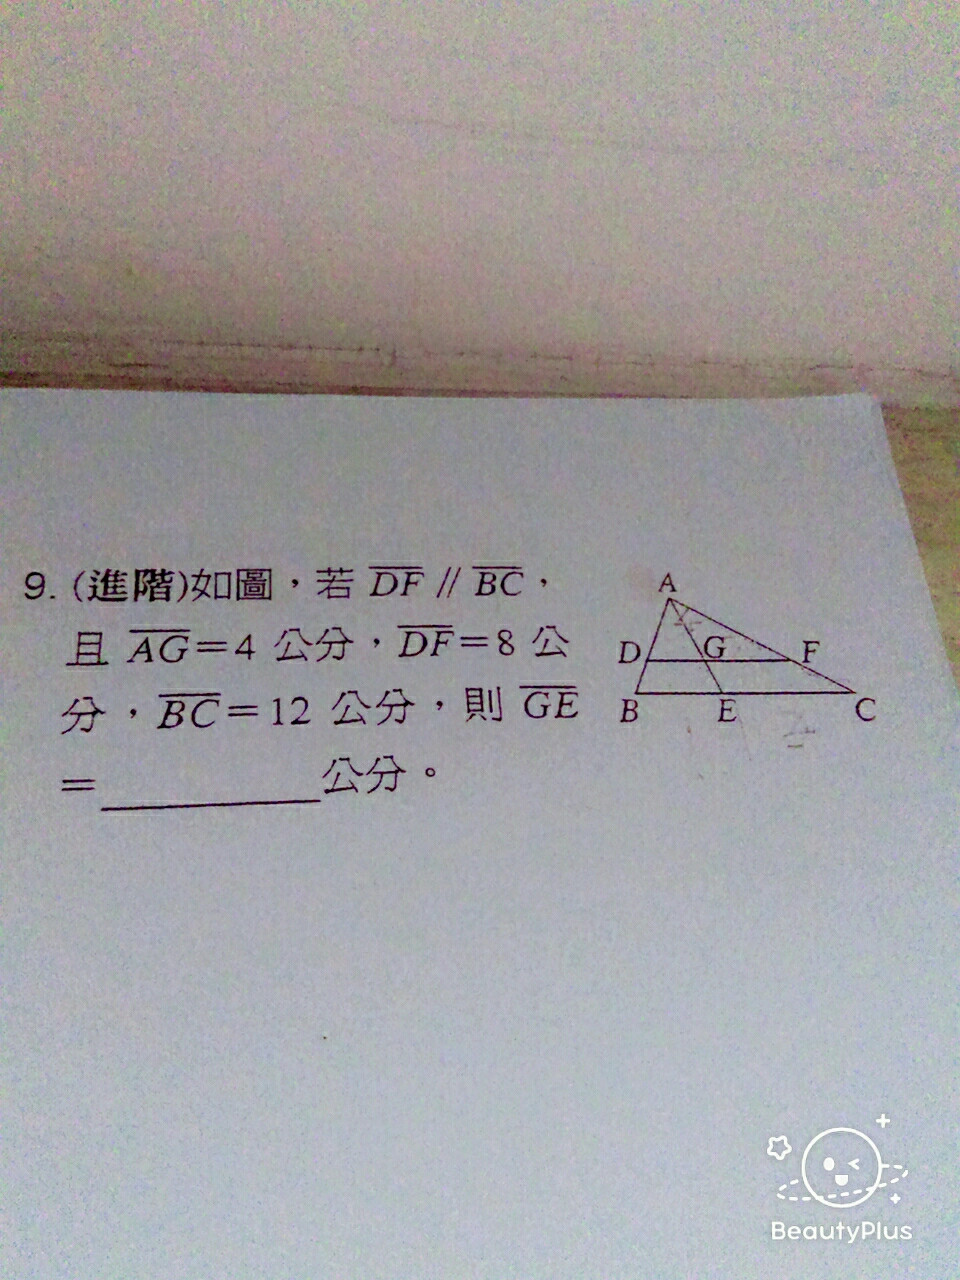 9. (進階)如圖，若 DF // BC，
且 AG=4 公分，DF=8 公
分，BC=12 公分，則 GE
=________公分。
A
D G F
B E C
BeautyPlus